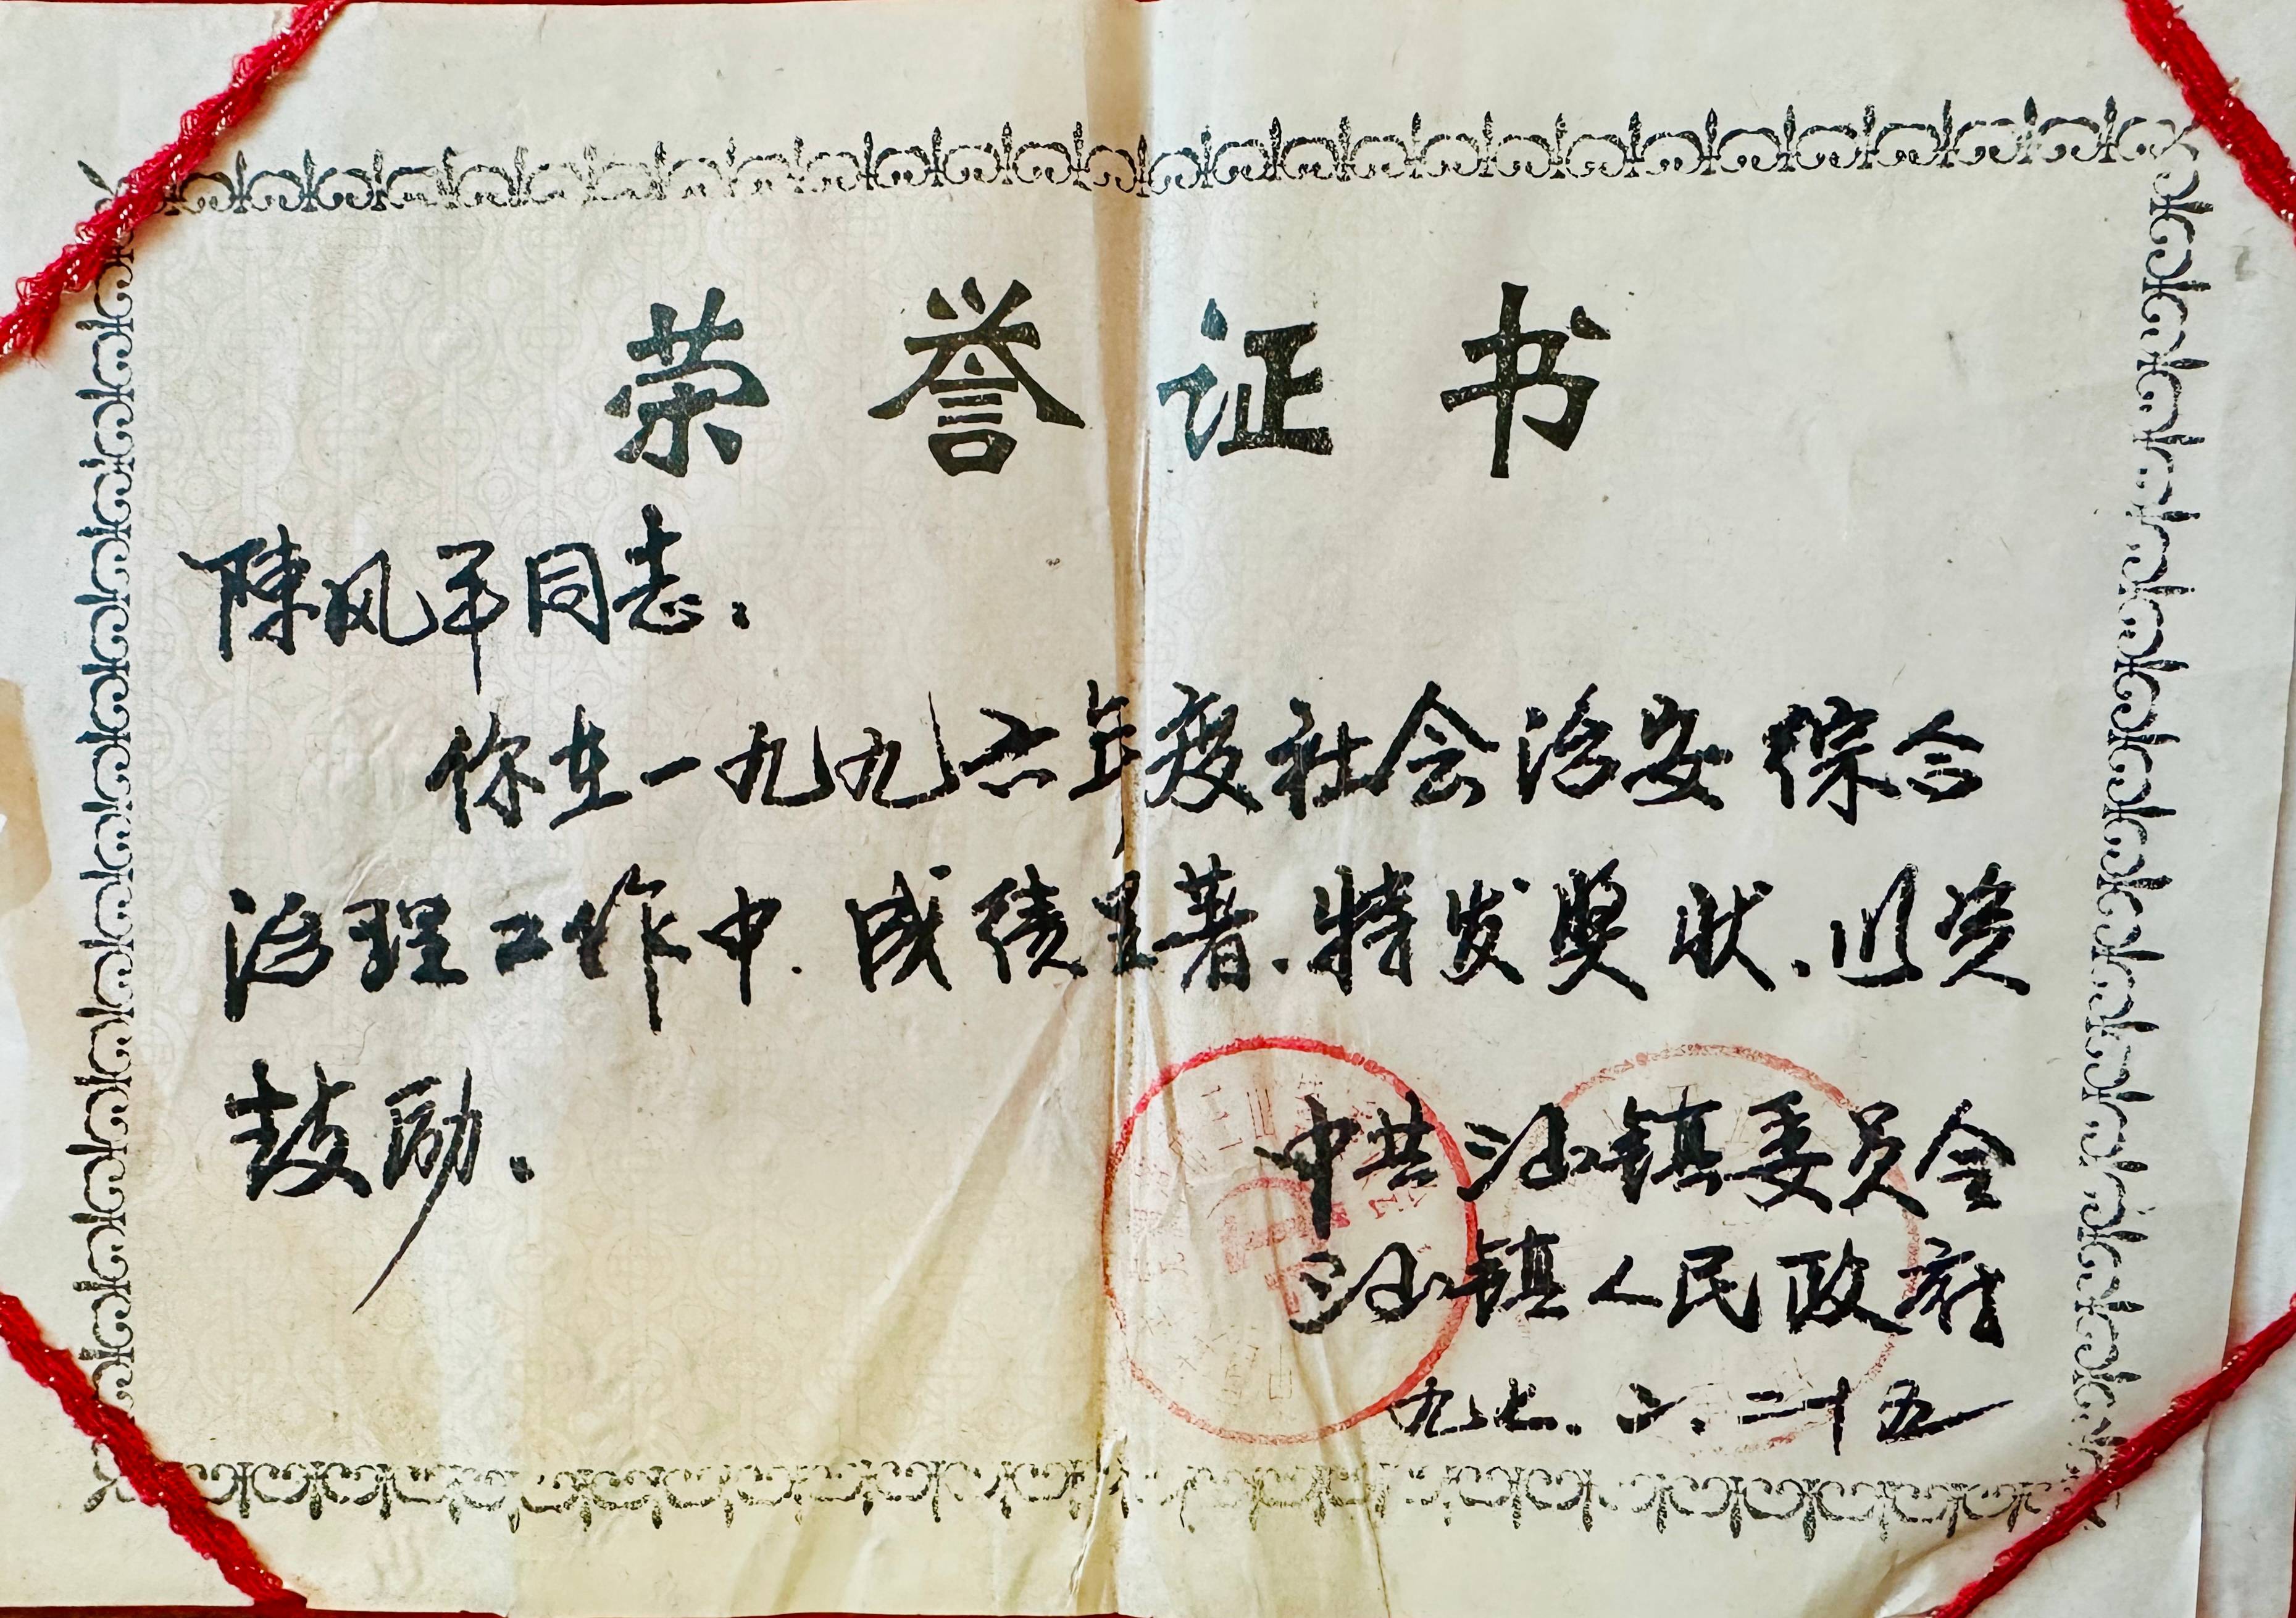 荣誉证书
陳风军同志.
你在一九九六年度社会治安综合
治理工作中.成绩显著.特发奖状.以资
鼓励.
中共汕镇委员会
汕镇人民政府
九七.六.二十五